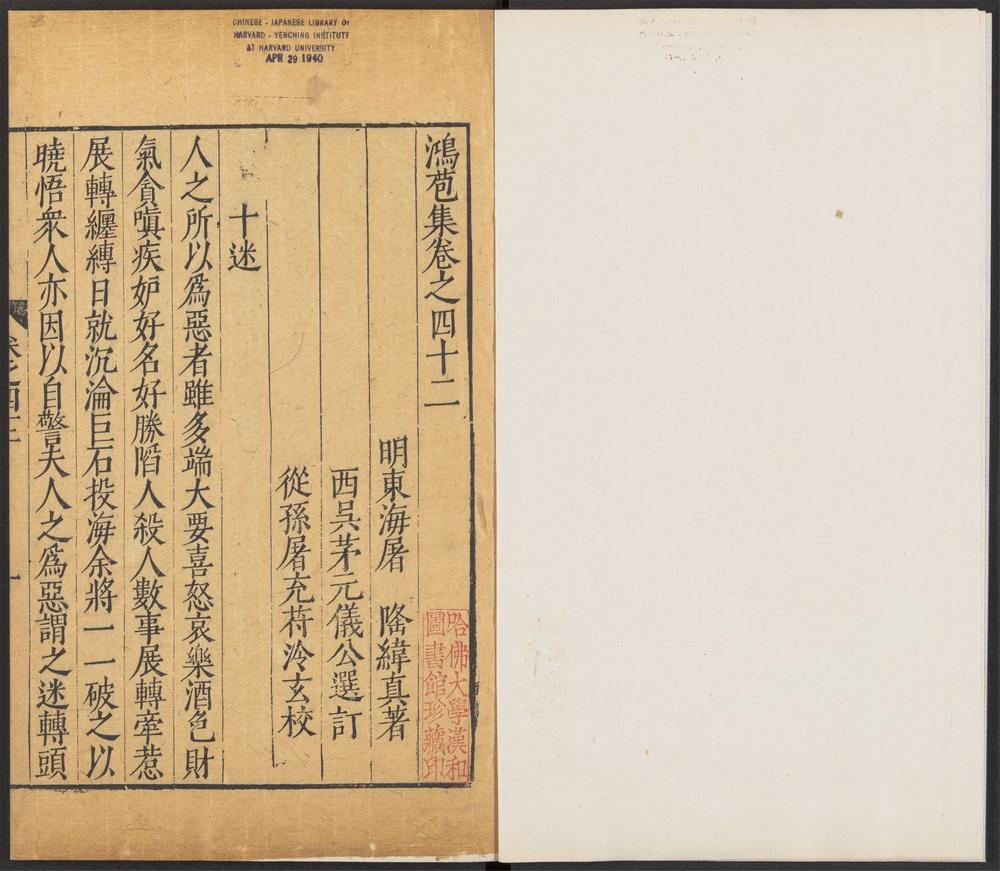 CHINESE - JAPANESE LIBRARY OF
HARVARD - YENCHING INSTITUTE
AT HARVARD UNIVERSITY
APR 29 1940
鴻苞集卷之四十二
明東海屠　隆緯真著
西吳茅元儀公選訂
從孫屠充符泠玄校
哈佛大學漢和
圖書館珍藏印
十迷
人之所以爲惡者雖多端大要喜怒哀樂酒色財
氣貪嗔疾妒好名好勝陷人殺人數事展轉牽惹
展轉纏縛日就沉淪巨石投海余將一一破之以
曉悟衆人亦因以自警夫人之爲惡謂之迷轉頭